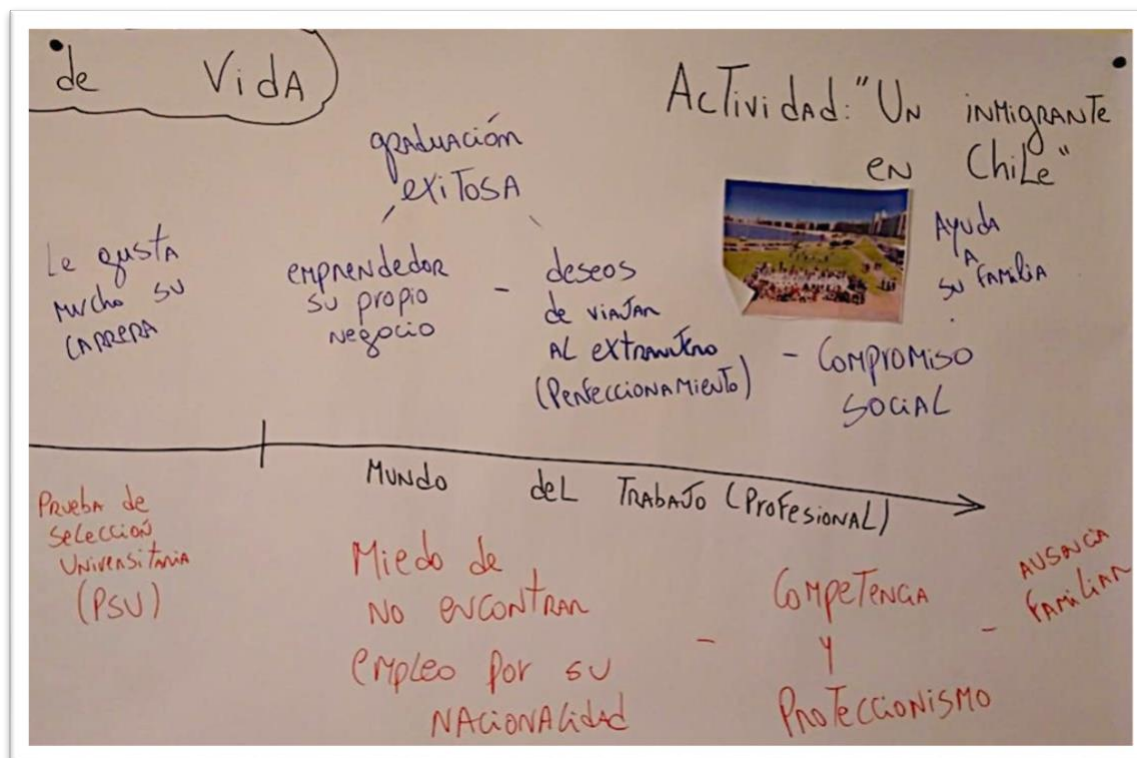 de Vida
Actividad: "Un inmigrante
en Chile"
graduación
exitosa
Le gusta
mucho su
carrera
emprendedor
su propio
negocio
-
deseos
de viajar
al extranjero
(Perfeccionamiento)
Ayuda
a
su familia
- Compromiso
social
Mundo del Trabajo (Profesional)
Prueba de
selección
Universitaria
(PSU)
Miedo de
no encontrar
empleo por su
nacionalidad
-
Competencia
y
Proteccionismo
-
ausencia
familiar